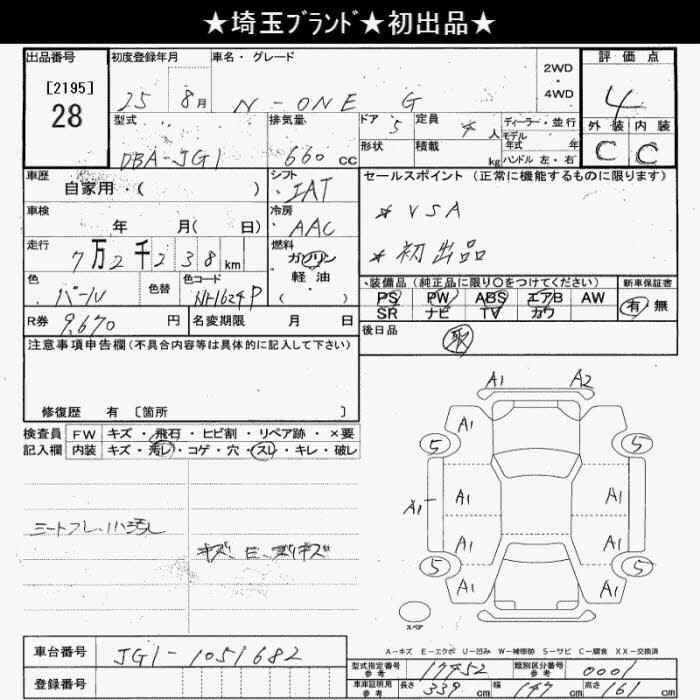 ★埼玉ﾌﾞﾗﾝﾄﾞ★初出品★
出品番号
[2195]
28
初度登録年月
25 8月
車名・グレード
N-ONE G
2WD
・
4WD
評価点
4
外装 内装
C C
型式
DBA-JG1
排気量
660 cc
ドア 5
定員 4 人
ディーラー・並行
モデル
年式 年
形状
積載 kg
ハンドル 左・右
車歴
自家用・( )
シフト
IAT
セールスポイント (正常に機能するものに限ります)
* VSA
* 初出品
車検
年 月( 日)
冷房
AAC
走行
7万2千238km
燃料
ガソリン
軽油
( )
色
パール
色替
色コード
NH624P
・装備品(純正品に限り○をつけてください)
PS PW ABS エアB AW
SR ナビ TV カワ
新車保証書
有・無
R券 9,670 円
名変期限 月 日
後日品
注意事項申告欄(不具合内容等は具体的に記入して下さい)
修復歴 有 [箇所 ]
検査員
記入欄
FW キズ・飛石・ヒビ割・リペア跡・×要
内装 キズ・汚レ・コゲ・穴・スレ・キレ・破レ
A1 A2
A1
5 5
A1 A1 A1
A1 A1
5 5
A1
スペア
A-キズ E-エクボ U-凹み W-補修跡 S-サビ C-腐食 XX-交換済
車台番号 JG1-1051682
登録番号
型式指定番号
参考
17452
類別区分番号
参考
0001
車庫証明用
参考
長さ 339 cm 幅 147 cm 高さ 161 cm